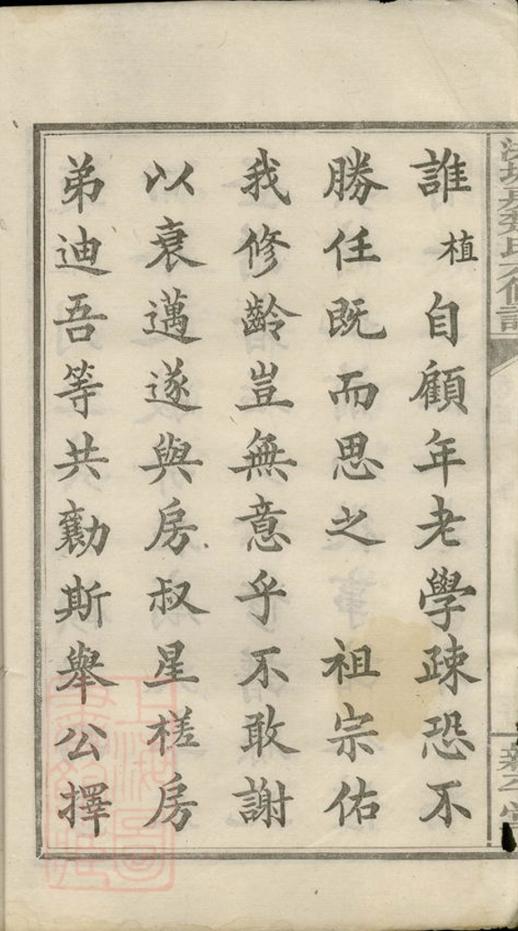 誰植自顧年老學疎恐不
勝任既而思之 祖宗佑
我修齡豈無意乎不敢謝
以衰邁遂與房叔星槎房
弟迪吾等共勷斯舉公擇